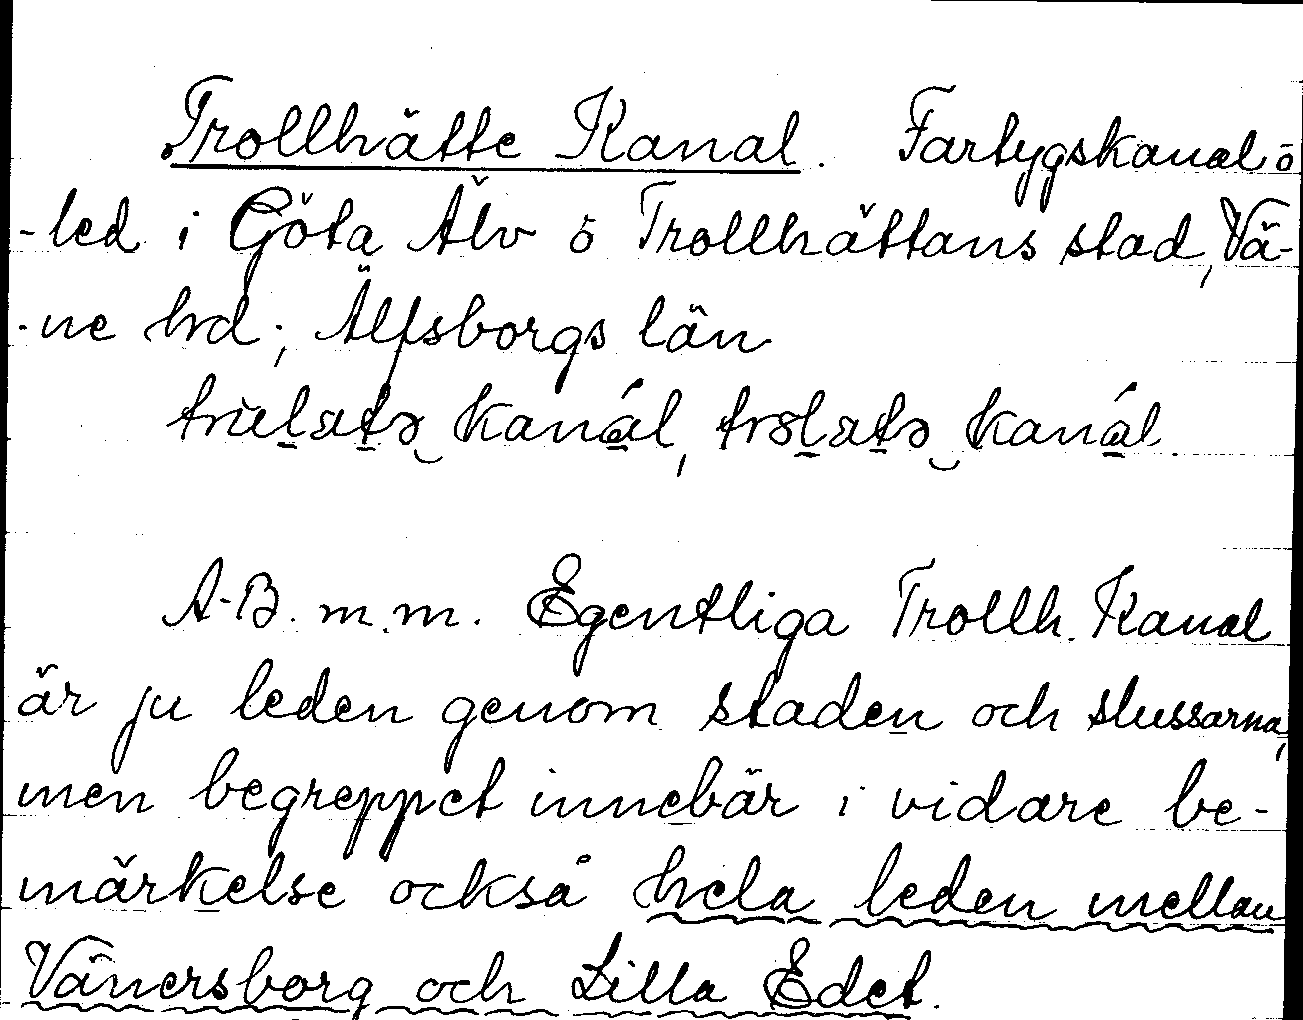 Trollhätte Kanal. Fartygskanal o
-led i Göta Älv o Trollhättans stad, Vä-
-ne hd; Älfsborgs län
kanál, kanál.
A-B. m.m. Egentliga Trollh. Kanal
är ju leden genom staden och slussarna,
men begreppet innebär i vidare be-
märkelse också hela leden mellan
Vänersborg och Lilla Edet.